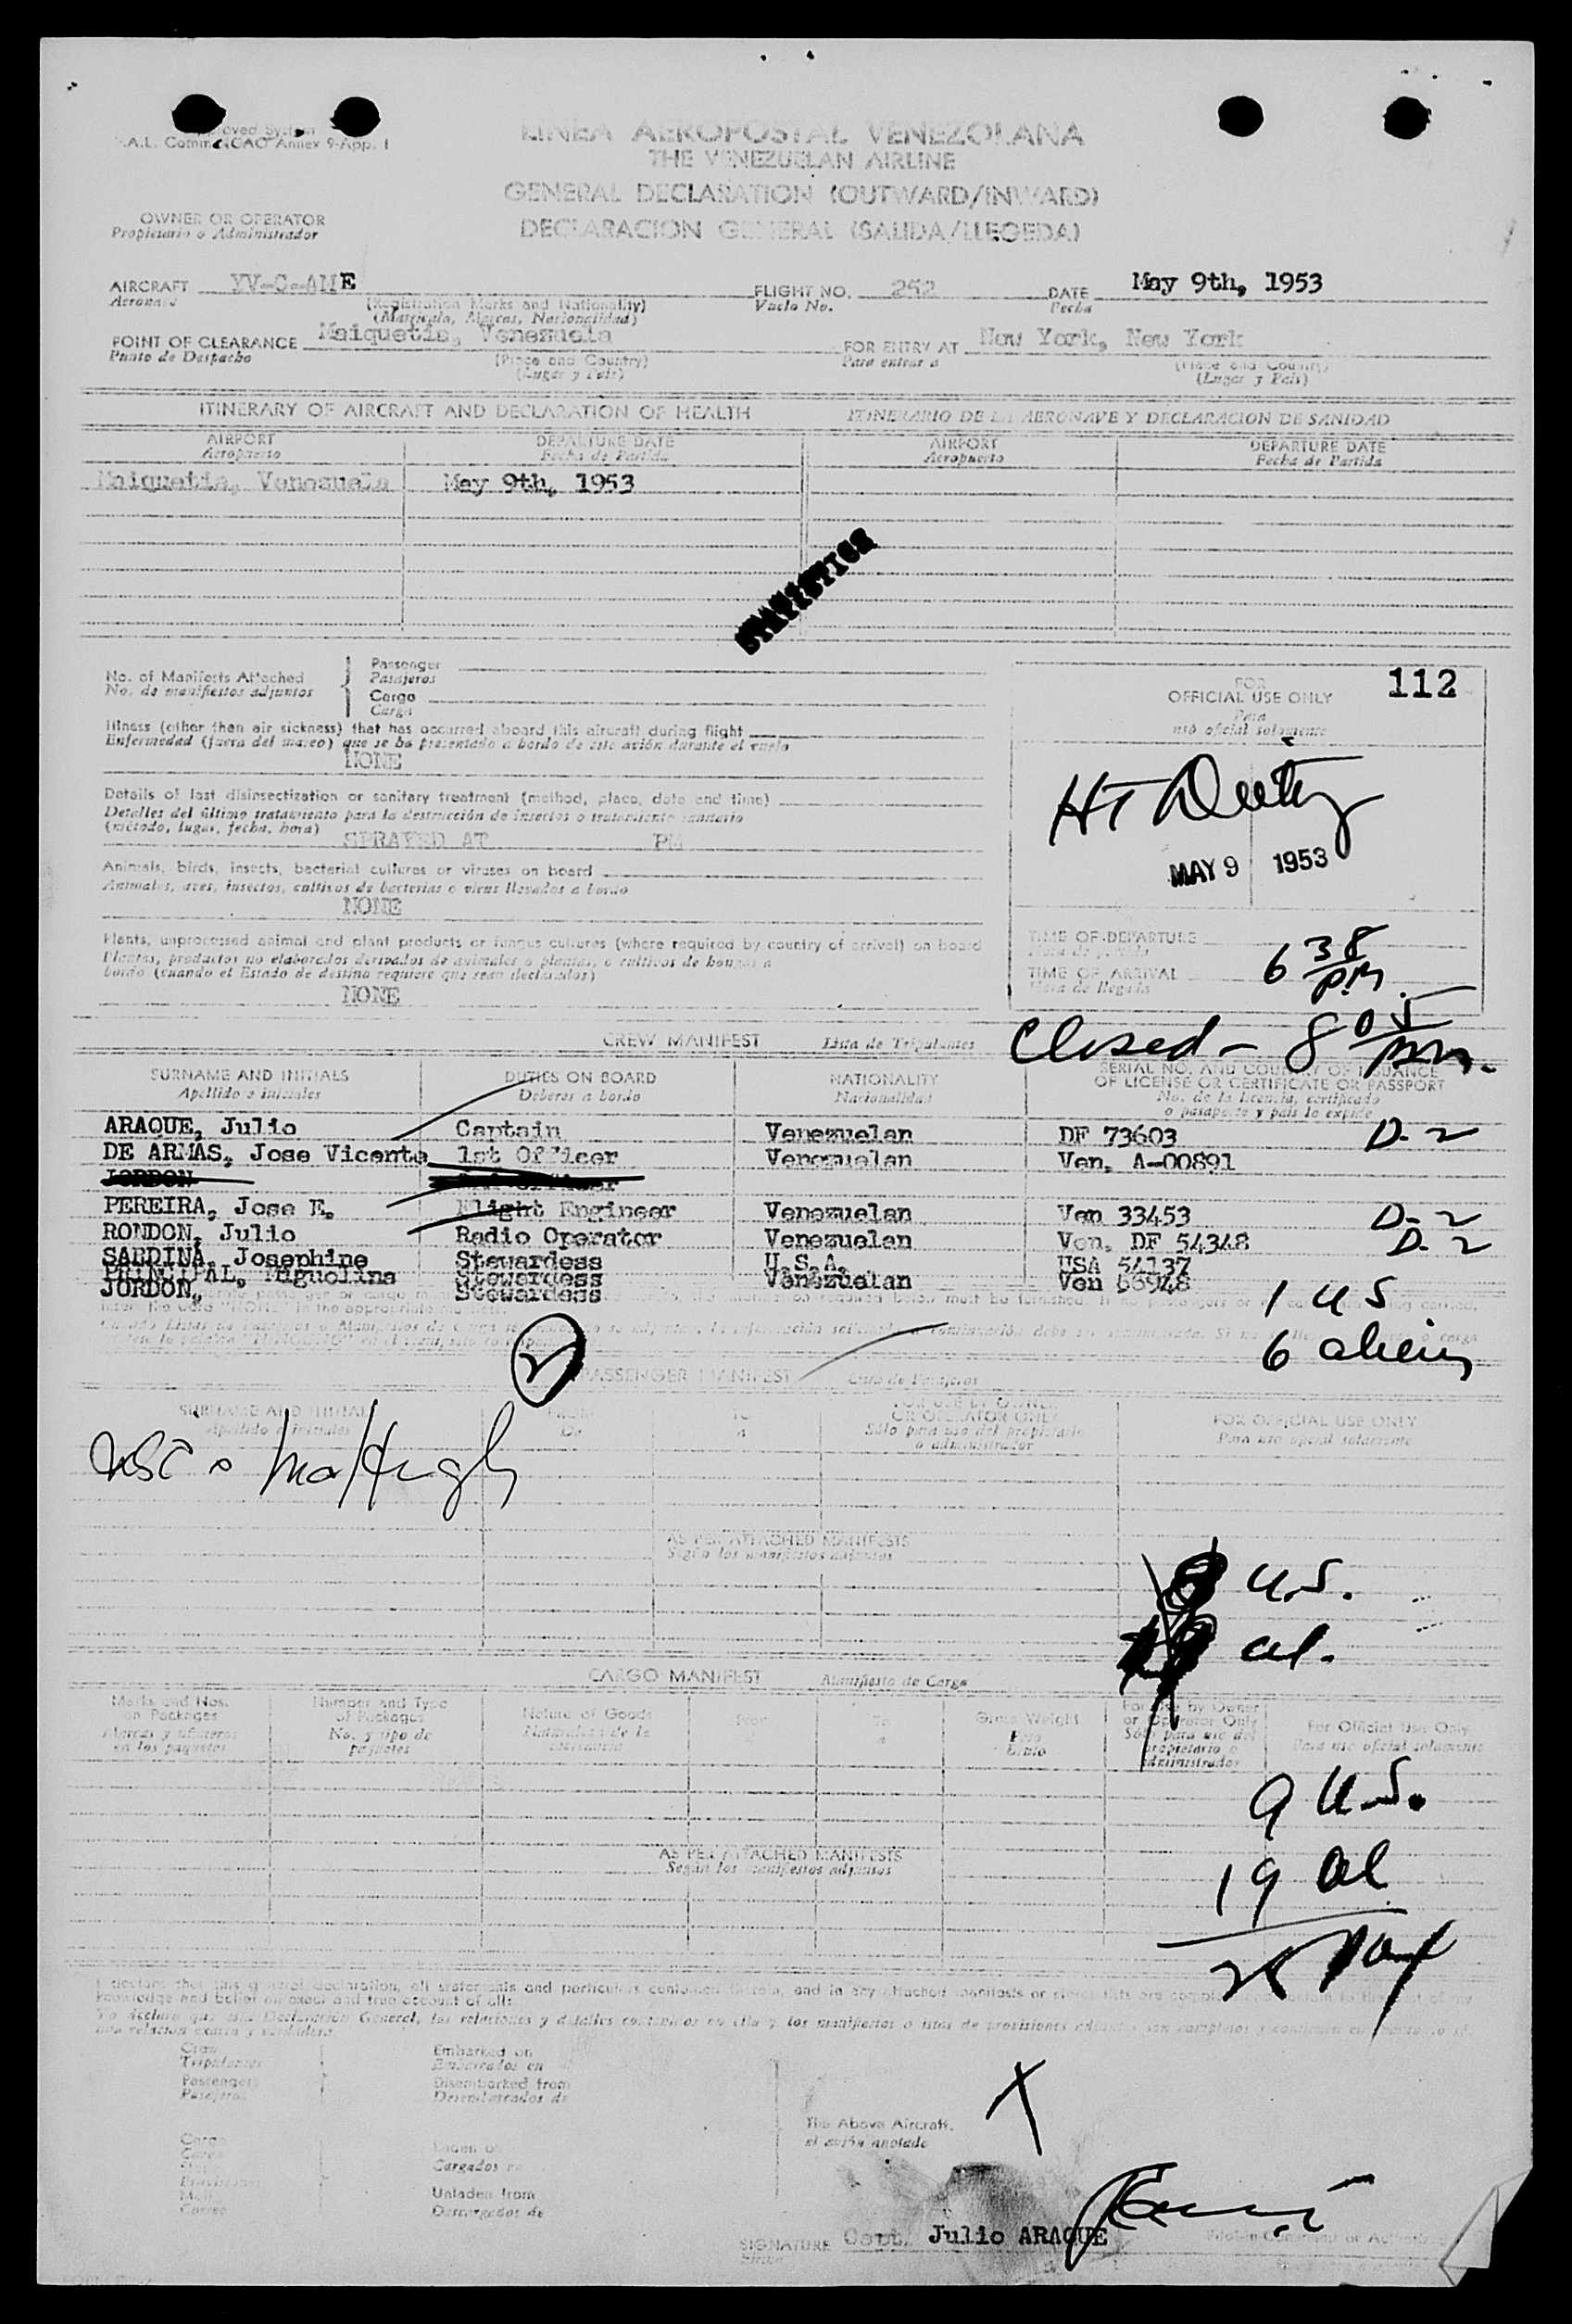 Approved System
A.L. Comm. ICAO Annex 9-App. 1
LINEA AEROPOSTAL VENEZOLANA
THE VENEZUELAN AIRLINE
GENERAL DECLARATION (OUTWARD/INWARD)
DECLARACION GENERAL (SALIDA/LLEGEDA)
OWNER OR OPERATOR
Propietario o Administrador
AIRCRAFT YV-C-AME FLIGHT NO. 252 DATE May 9th, 1953
Aeronave (Registration Marks and Nationality) Vuelo No. Fecha
(Matricula, Marcas, Nacionalidad)
POINT OF CLEARANCE Maiquetia, Venezuela FOR ENTRY AT New York, New York
Punto de Despacho (Place and Country) Para entrar a (Place and Country)
(Lugar y Pais) (Lugar y Pais)
ITINERARY OF AIRCRAFT AND DECLARATION OF HEALTH ITINERARIO DE LA AERONAVE Y DECLARACION DE SANIDAD
AIRPORT DEPARTURE DATE AIRPORT DEPARTURE DATE
Aeropuerto Fecha de Partida Aeropuerto Fecha de Partida
Maiquetia, Venezuela May 9th, 1953
STATISTICS
No. of Manifests Attached Passenger
No. de manifiestos adjuntos Pasajeros
Cargo
Carga
FOR 112
OFFICIAL USE ONLY
Para
uso oficial solamente
Illness (other than air sickness) that has occurred aboard this aircraft during flight
Enfermedad (fuera del mareo) que se ha presentado a bordo de este avión durante el vuelo
NONE
Details of last disinsectization or sanitary treatment (method, place, date and time)
Detalles del último tratamiento para la destrucción de insectos o tratamiento sanitario
(método, lugar, fecha, hora)
SPRAYED AT PM
MAY 9 1953
Animals, birds, insects, bacterial cultures or viruses on board
Animales, aves, insectos, cultivos de bacterias o virus llevados a bordo
NONE
Plants, unprocessed animal and plant products or fungus cultures (where required by country of arrival) on board
Plantas, productos no elaborados derivados de animales o plantas, o cultivos de hongos a
bordo (cuando el Estado de destino requiere que sean declarados)
NONE
TIME OF DEPARTURE
Hora de partida
TIME OF ARRIVAL 6 38 P.M.
Hora de llegada
Closed - 8 05 pm.
CREW MANIFEST Lista de Tripulantes
SURNAME AND INITIALS DUTIES ON BOARD NATIONALITY SERIAL NO. AND COUNTRY OF ISSUANCE
OF LICENSE OR CERTIFICATE OR PASSPORT
Apellido e iniciales Deberes a bordo Nacionalidad No. de la licencia, certificado
o pasaporte y pais lo expide
ARAQUE, Julio Captain Venezuelan DF 73603 D-2
DE ARMAS, Jose Vicente 1st Officer Venezuelan Ven. A-00891
JORDON
PEREIRA, Jose E. Flight Engineer Venezuelan Ven 33453 D-2
RONDON, Julio Radio Operator Venezuelan Ven. DF 54348 D-2
SARDINA, Josephine Stewardess U.S.A. USA 54137
PRINCIPAL, Miguolina Stewardess Venezuelan Ven 66948
JORDON, Stewardess
1 US
6 aliens
2
PASSENGER MANIFEST Lista de Pasajeros
SURNAME AND INITIALS FROM TO FOR USE BY OWNER
OR OPERATOR ONLY FOR OFFICIAL USE ONLY
Apellido e iniciales De a Sólo para uso del propietario
o administrador Para uso oficial solamente
AS PER ATTACHED MANIFESTS
Según los manifiestos adjuntos
U.S.
al.
CARGO MANIFEST Manifiesto de Carga
Marks and Nos. on Packages Number and Type of Packages Nature of Goods From To Gross Weight For Use by Owner or Operator Only For Official Use Only
Marcas y números en los paquetes No. y tipo de paquetes Naturaleza de la a Peso Bruto Sólo para uso del propietario o administrador Para uso oficial solamente
9 U.S.
AS PER ATTACHED MANIFESTS
Según los manifiestos adjuntos
19 al
I declare that this general declaration, all statements and particulars contained therein, and in any attached manifests
knowledge and belief an exact and true account of all:
Crew Embarked on
Tripulantes Embarcados en
Passengers Disembarked from
Pasajeros Desembarcados de
The Above Aircraft.
el avión anotado
Cargo
Cargados en
Unladen from
Correo Descargados de
SIGNATURE Capt. Julio ARAQUE
Firma